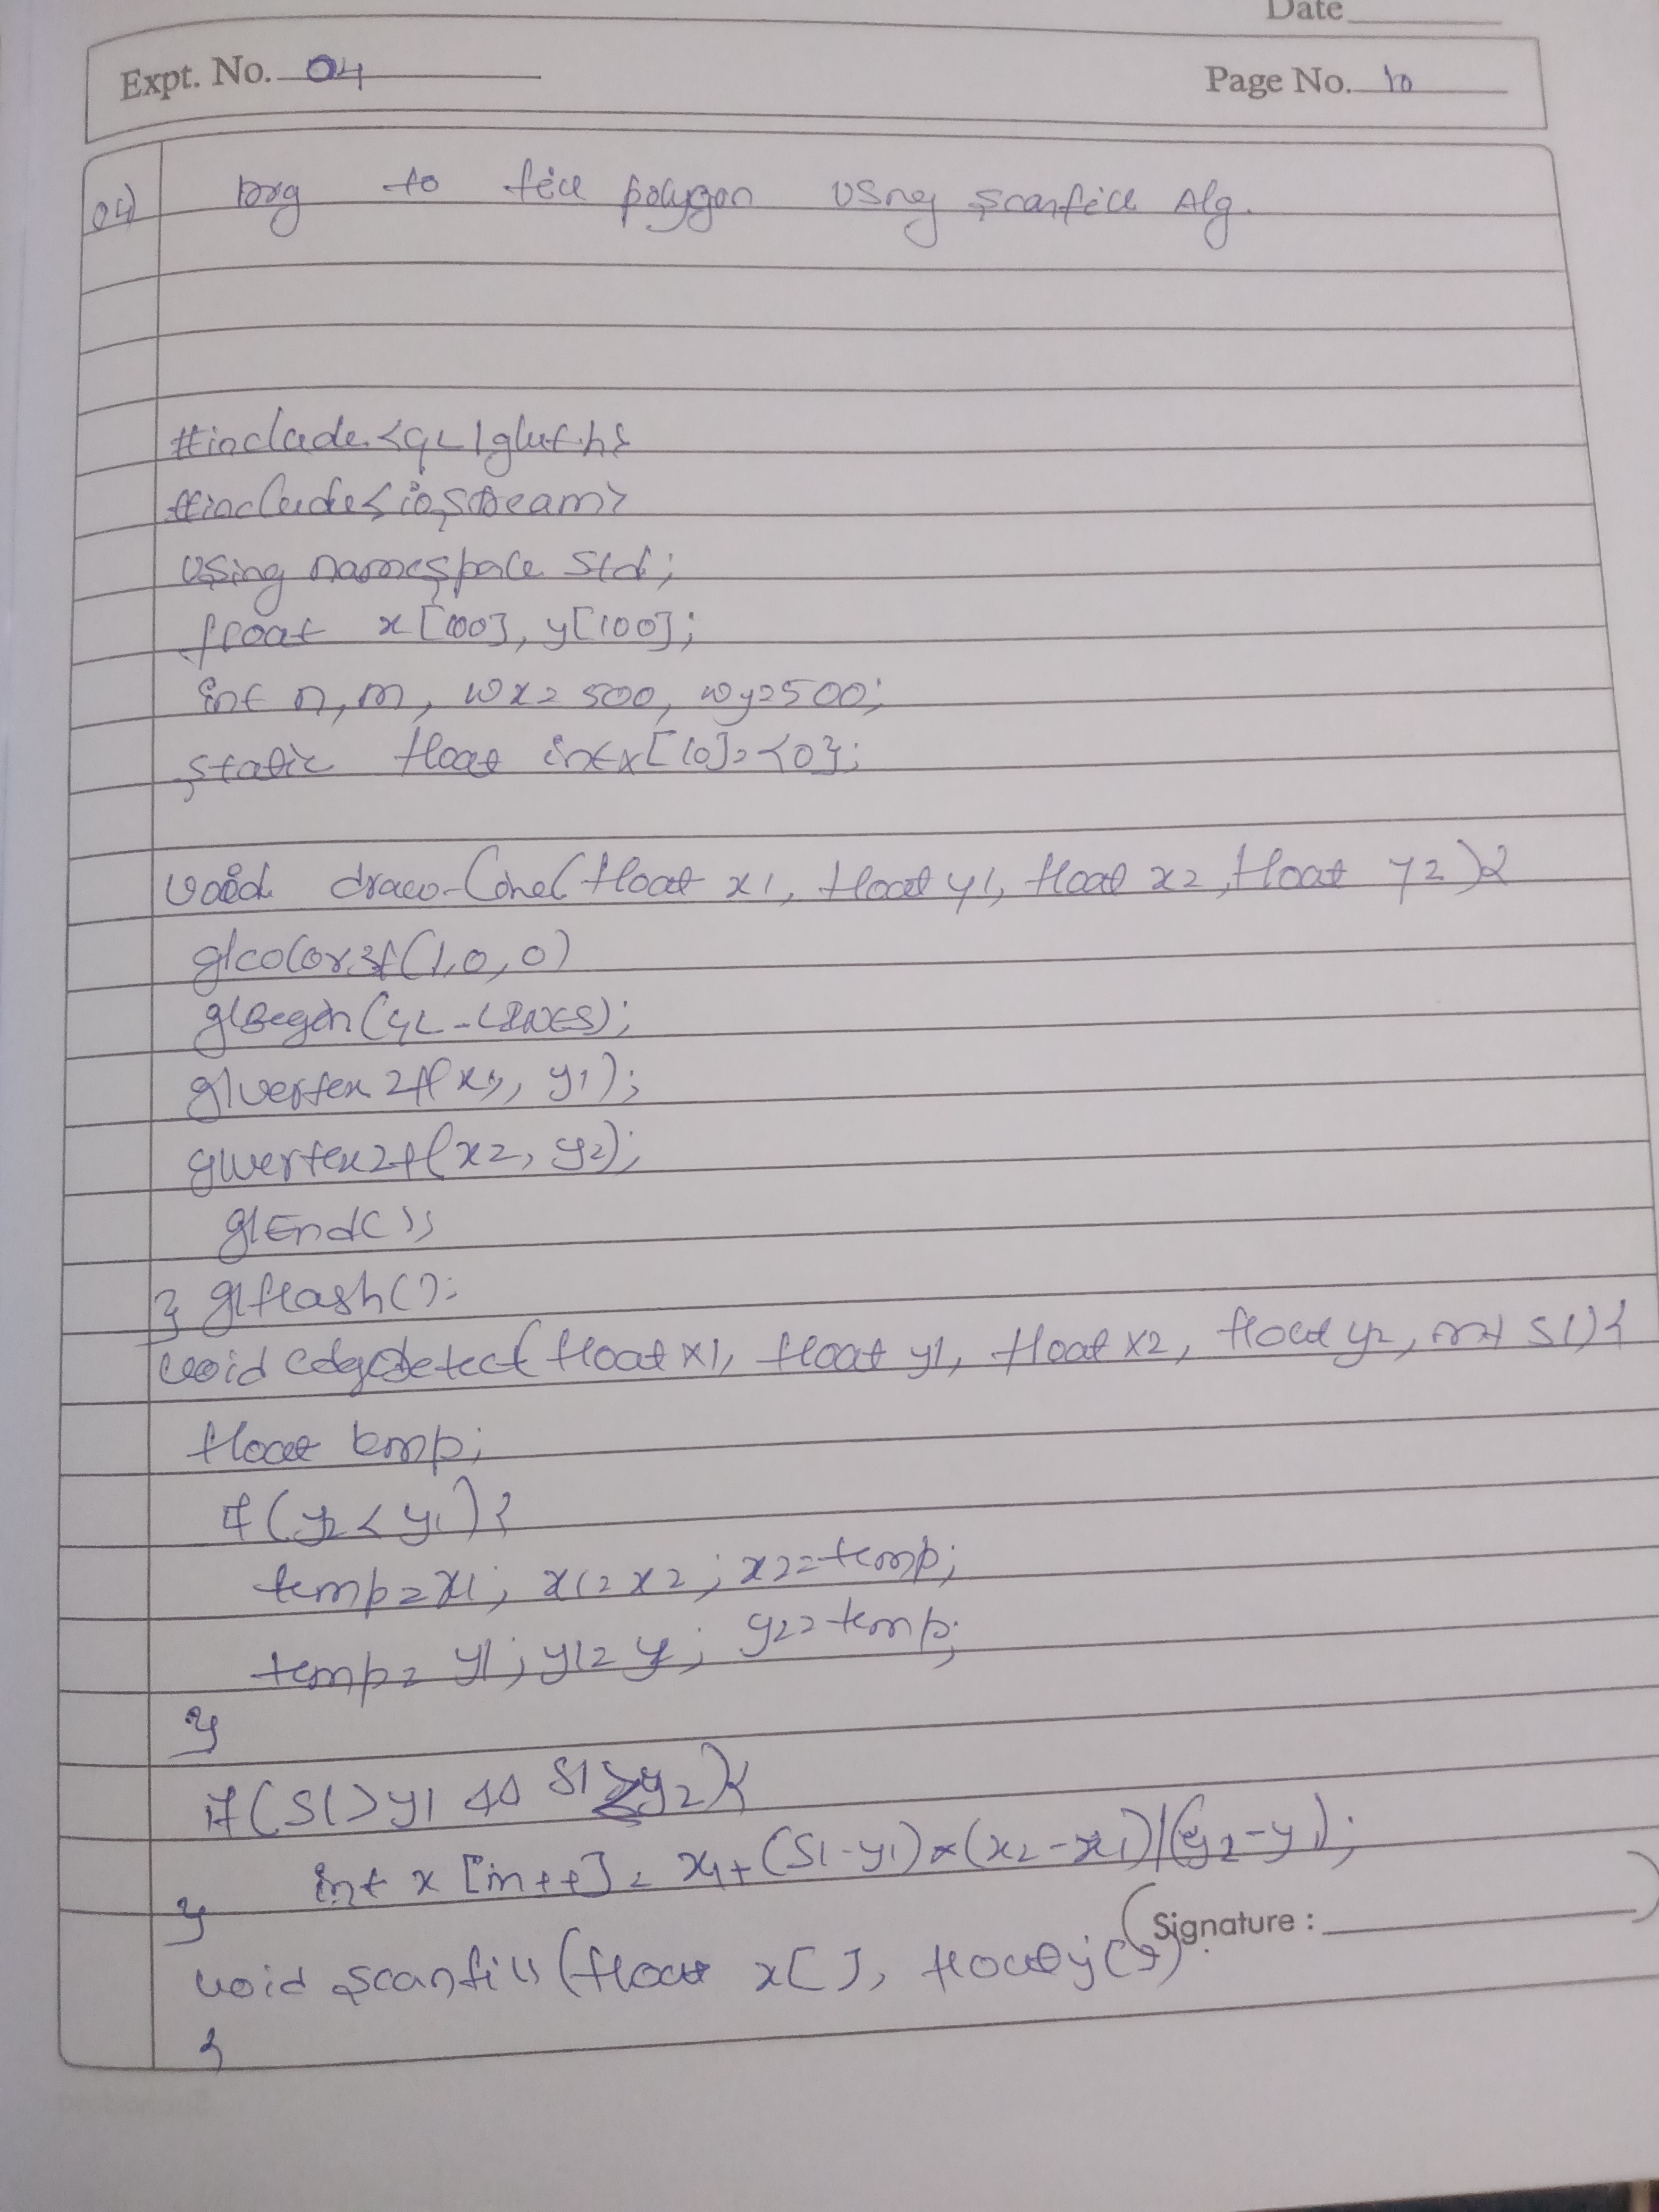 Date
Expt. No. 04
Page No. 10
04) prg to fill polygon using scanfill Alg.
#include<GL/glut.h>
#include<iostream>
using namespace std;
float x[100], y[100];
int n, m, wx=500, wy=500;
static float intx[10]={0};
void draw-line(float x1, float y1, float x2, float y2){
glcolor3f(1,0,0)
glBegin(GL-LINES);
glvertex2f(x1, y1);
glvertex2f(x2, y2);
glEnd();
} glflash();
void edgedetect(float x1, float y1, float x2, float y2, int sl){
float temp;
if(y2<y1){
temp=x1; x1=x2; x2=temp;
temp=y1; y1=y; y2=temp;
}
if(sl>y1 && sl y2){
int x[m++]= x1+(sl-y1)*(x2-x1)/(y2-y1);
}
Signature :
void scanfill(float x[], float y[])
{